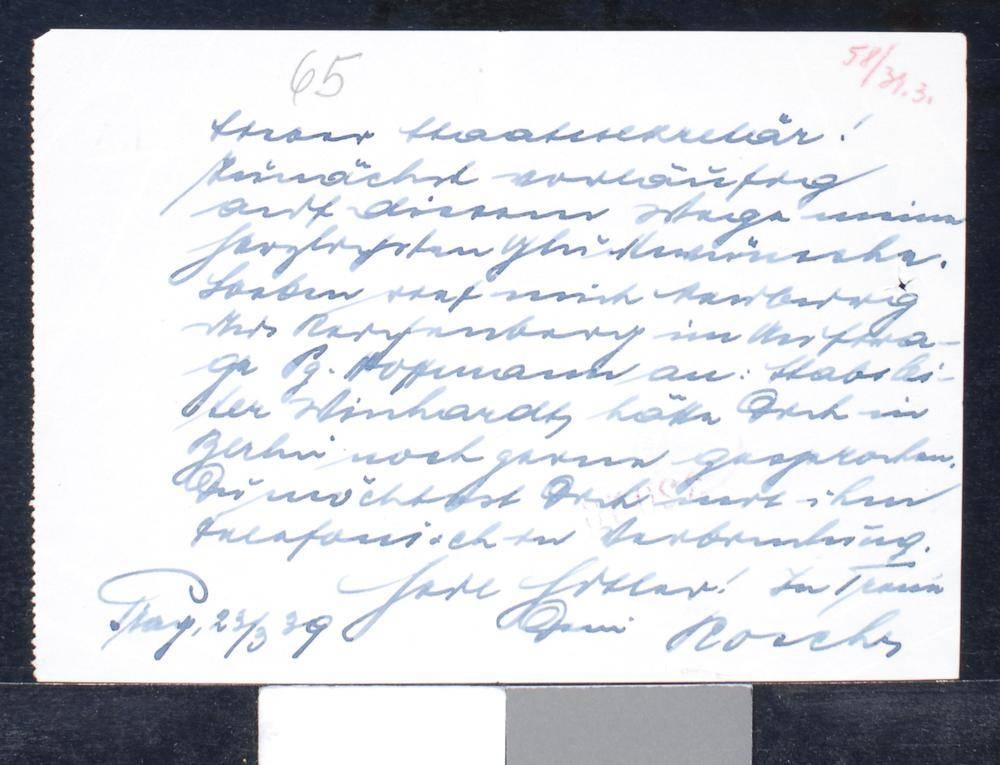 65
58/31.3.
Staatssekretär!
Zunächst vorläufig
auf diesem Wege meine
herzlichsten Glückwünsche.
Soeben rief mich
Reichenberg im Auftra-
ge Pg. Hoffmann an: Stabslei-
ter hätte Dich in
Berlin noch gerne gesprochen.
Du möchtest Dich mit ihm
telefonisch in Verbindung.
Heil Hitler! In Treue
Prag, 23/3 39 Dein